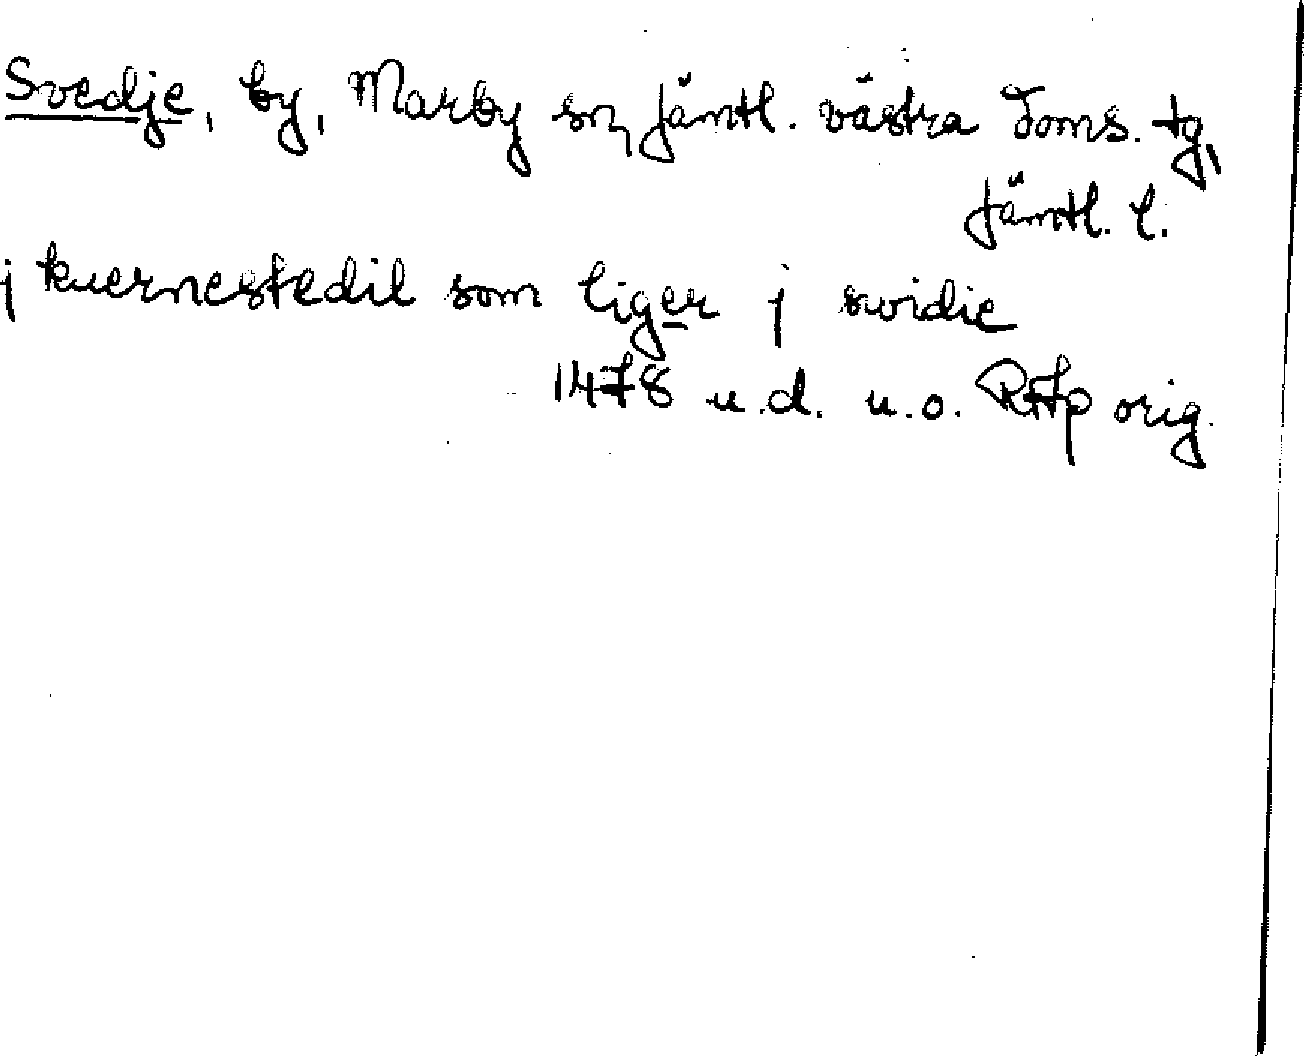 Svedje, by, Marby sn, Jämtl. västra Doms. tg,
Jämtl. l.
j kuernestedil som liger j swidie
1478 u.d. u.o. RAp orig.